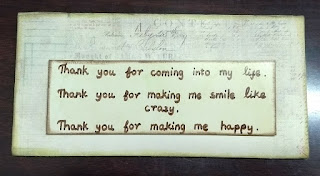 Thank you for coming into my life.
Thank you for making me smile like
crazy.
Thank you for making me happy.